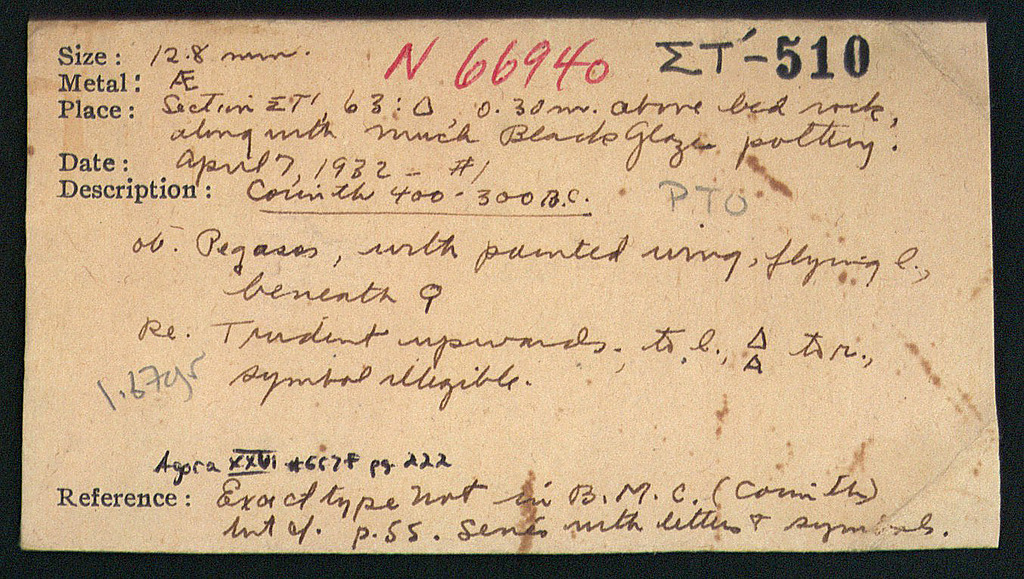 Size : 12.8 mm.
N 66940
ΣΤ'-510
Metal : Æ
Place : Section ΣΤ', 63 : Δ, 0.30 m. above bed rock,
along with much Black Glaze pottery.
Date : April 7, 1932 - #1
Description : Corinth 400 - 300 B.C.
PTO
ob. Pegasos, with pointed wing, flying l.,
beneath Ϙ
Re. Trident upwards. to l., Δ to r.,
A
symbol illegible.
1.67gr
Agora XXVI pg 222
Reference : Exact type not in B.M.C. (Corinth)
but cf. p.55. Series with letters & symbols.